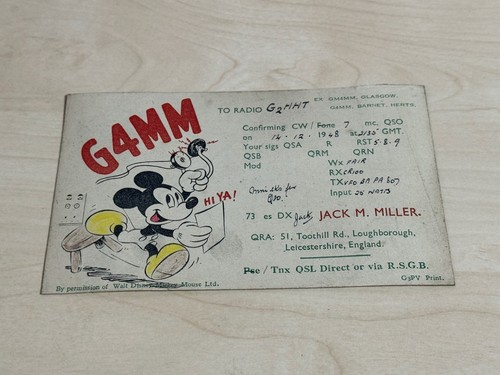 G4MM
TO RADIO G2HHT EX GM4MM, GLASGOW.
G4MM, BARNET, HERTS.
Confirming CW / Fone 7 mc. QSO
on 14-12-1948 at 2135 GMT.
Your sigs QSA R RST 5-8-9
QSB QRM QRN
Mod Wx FAIR
RX CR100
TX VFO BA PA 807
Input 25 WATTS
HI YA!
Omni tks for
QSO.
73 es DX Jack JACK M. MILLER.
QRA: 51, Toothill Rd., Loughborough,
Leicestershire, England.
Pse / Tnx QSL Direct or via R.S.G.B.
By permission of Walt Disney Mickey Mouse Ltd.
G3PV Print.